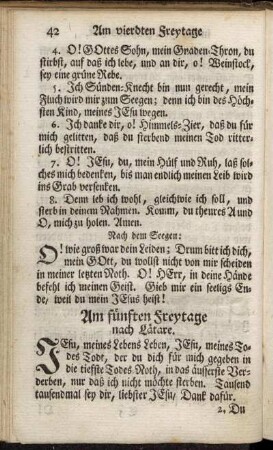 42 Am vierdten Freytage
4. O! GOttes Sohn, mein Gnaden-Thron, du
stirbst, auf daß ich lebe, und an dir, o! Weinstock,
sey eine grüne Rebe.
5. Ich Sünden-Knecht bin nun gerecht, mein
Fluch wird mir zum Seegen; denn ich bin des Höch-
sten Kind, meines JEsu wegen.
6. Ich dancke dir, o! Himmels-Zier, daß du für
mich gelitten, daß du sterbend meinen Tod ritter-
lich bestritten.
7. O! JEsu, du, mein Hülf und Ruh, laß sol-
ches mich bedencken, biß man endlich meinen Leib wird
ins Grab versencken.
8. Denn leb ich wohl, gleichwie ich soll, und
sterb in deinem Nahmen. Komm, du theures A und
O, mich zu holen. Amen.
Nach dem Seegen:
O! wie groß war dein Leiden; Drum bitt ich dich,
mein GOtt, du wollst nicht von mir scheiden
in meiner letzten Noth. O! HErr, in deine Hände
befehl ich meinen Geist. Gieb mir ein seeligs En-
de, weil du mein JEsus heist!
Am fünften Freytage
nach Lätare.
JEsu, meines Lebens Leben, JEsu, meines To-
des Todt, der du dich für mich gegeben in
die tiefste Todes-Noth, in das äusserste Ver-
derben, nur daß ich nicht möchte sterben. Tausend
tausendmal sey dir, liebster JEsu, Danck dafür.
2. Du